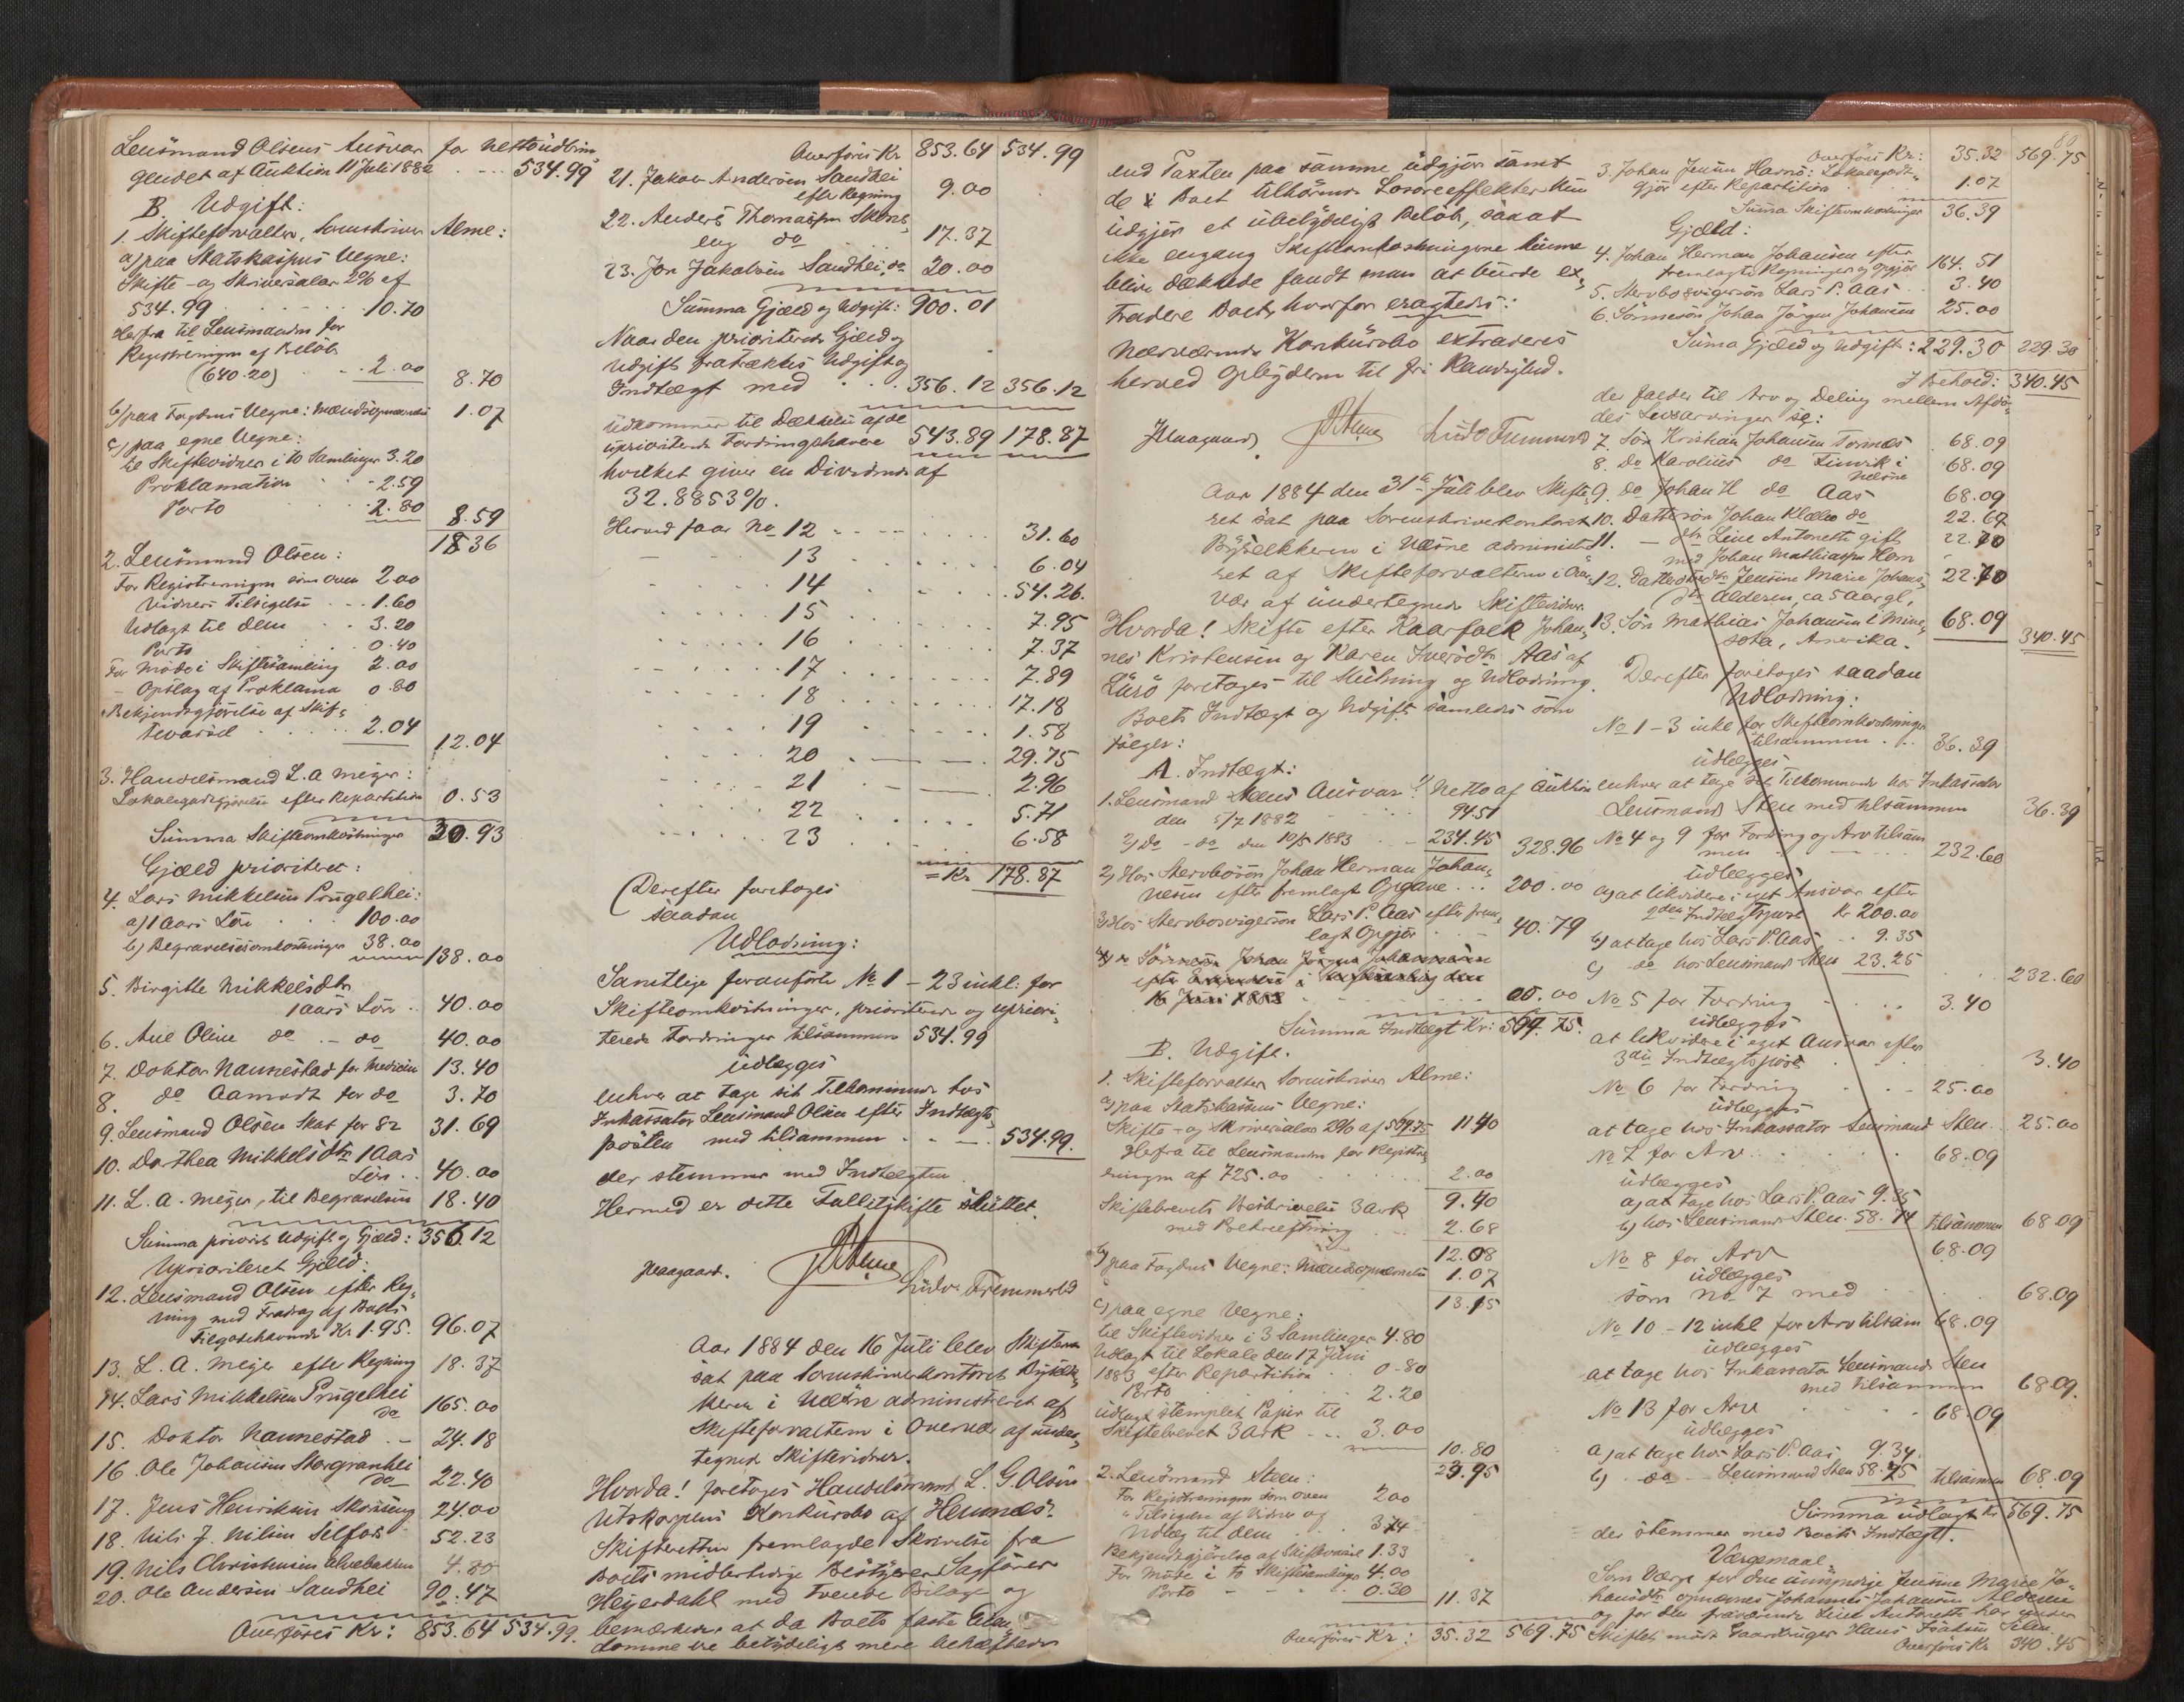 Lensmand Olsens Ansvar for Nettoudbrin
gendet af Auktion 11 Juli 1882 . . . 534.99
B. Udgift:
1. Skifteforvalter, Sorenskriver Alme:
a) paa Statskassens Vegne:
Skifte- og Skriversalar 2% af
534.99 . . . 10.70
Herfra til Lensmanden for
Registreringen af Beløb
(640.20) . . 2.00
8.70
b) paa Fogdens Vegne: 1.07
c) paa egne Vegne:
til Skiftevidner i to Samlinger 3.20
Proklamation . . 2.59
Porto . . 2.80
8.59
18 36
2. Lensmand Olsen:
For Registreringen som oven 2.00
Vidners Tilsigelse . . . 1.60
Udlagt til dem . . 3.20
Porto . . 0.40
For Møde i Skiftesamling 2.00
- Opslag af Proklama 0.80
- Bekjendtgjørelse af Skif-
tevarsel . . . 2.04
12.04
3. Handelsmand L. A Meyer:
Lokalegodtgjørelse efter Repartition 0.53
Summa Skifteomkostninger 30.93
Gjæld prioriteret:
4. Lars Mikkelsen Prugelhei:
a) 1 Aars Løn . . 100.00
b) Begravelsesomkostninger 38.00
138.00
5. Birgitte Mikkelsdtr
1 aars Løn . . 40.00
6. Ane Oline do . - do 40.00
7. Doktor Nannestad for Medicin 13.40
8. do Aamodt for do 3.70
9. Lensmand Olsen Skat for 82 31.69
10. Dorthea Mikkelsdtr 1 Aars
Løn . . 40.00
11. L. A. Meyer, til Begravelsen 18.40
Summa priorit Udgift og Gjæld: 356.12
Uprioriteret Gjæld:
12. Lensmand Olsen efter Reg-
ning med Fradrag af Boets
Tilgodehavende Kr. 1.95. 96.07
13. L. A. Meyer efter Regning 18.37
14. Lars Mikkelsen Prugelhei
do 165.00
15. Doktor Nannestad . - 24.18
16. Ole Johansen Storgranhei
do 22.40
17. Jens Henriksen 24.00
18. Nils J. Nilsen Silfors 52.23
19. Nils Christensen 4.80
20. Ole Andersen Sandhei 90.47
Overføres Kr: 853.64 534.99.
Overføres Kr 853.64 534.99
21. Jakob Andersen Sandhei
efter Regning 9.00
22. Anders Thomassen
eng do . . . 17.37
23. Jon Jakobsen Sandhei, do 20.00
Summa Gjæld og Udgift: 900.01
Naar den prioriterede Gjæld og
Udgift fratrækkes Udgift og
Indtægt med . . . 356.12 356.12
udkommer til Dækkelse af de
uprioriterede Fordringshavere 543.89 178.87
hvilket giver en Dividende af
32.8853%.
Herved faar No 12 . . . 31.60
13 . . . 6.04
14 . . . 54.26.
15 . . . 7.95
16 . . . 7.37
17 . . . 7.89
18 . . . 17.18
19 . . . 1.58
20 . . . 29.75
21 . . . 2.96
22 . . . 5.71
23 . . . 6.58
= Kr 178.87
Derefter foretoges
saadan
Udlodning:
Samtlige foranførte No 1 - 23 inkl: for
Skifteomkostninger, prioriterede og upriori-
terede Fordringer tilsammen 534.99
udlægges
enhver at tage sit Tilkommende hos
Inkassator Lensmand Olsen efter Indtægts-
posten med tilsammen . . . 534.99.
der stemmer med Indtægten
Hermed er dette Fallitskifte sluttet.
Haagaard. JAlme Ludv: Tremmerud
Aar 1884 den 16 Juli blev Skifteret
sat paa Sorenskriverkontoret Bysælk-
keren i Næsne administreret af
Skifteforvalteren i Overvær af under-
tegnede Skiftevidner.
Hvorda! foretoges Handelsmand L. G. Olsen
Utskarpens Konkursbo af Hemnæs.
Skifteretten fremlagde Skrivelse fra
Boets midlertidige Bestyrer Sagfører
Heyerdahl med tvende Bilage og
bemærkede at da Boets faste Eien-
domme ere betydeligt mere behæftede
end Taxten paa samme udgjør samt
de Boet tilhørende Løsøreeffekter kun
udgjør et ubetydeligt Beløb, saa at
ikke engang Skifteomkostningerne kunne
blive dækkede fandt man at burde ex-
tradere Boet, hvorfor eragtedes:
Nærværende Konkursbo extraderes
herved Oplyderen til fri Raadighed.
Haagaard. JAlme Ludv Tremmerud
Aar 1884 den 31te Juli blev Skifte-
ret sat paa Sorenskriverkontoret
Bysælkkeren i Næsne administre-
ret af Skifteforvalteren i Over-
vær af undertegnede Skiftevidner.
Hvorda! Skifte efter Kaarfolk Johan-
nes Kristensen og Karen Iversdtr Aas af
Lurø foretoges til Slutning og Udlodning.
Boets Indtægt og Udgift samledes som
følger:
A. Indtægt:
1. Lensmand Steens Ansvar 1) Netto af Auktion
den 5/7 1882 . . 94.51
2) Do - do den 10/5 1883 . . 234.45 328.96
2) Hos Stervbosøn Johan Herman Johan-
nesen efter fremlagt Opgave . . . 200.00
3) Hos Stervbosvigersøn Lars P. Aas efter frem-
lagt Opgjør . . 40.79
16 Juni 1883 . . . 00.00
Summa Indtægt Kr: 569.75.
B. Udgift.
1. Skifteforvalter Sorenskriver Alme:
a) paa Statskassens Vegne:
Skifte- og Skriversalar 2% af 569.75 11 40
Herfra til Lensmanden for Registre-
ringen af 725.00 . . . 2.00
9.40
Skiftebrevets Beskrivelse 3 Ark
med Bekræftning . . 2.68
12.08
b) paa Fogdens Vegne: 1.07
13.15
c) paa egne Vegne:
til Skiftevidner i 3 Samlinger 4.80
Udlagt til Lokale den 17 Juni
1883 efter Repartition . . 0.80
Porto . . . 2.20
udlagt stemplet Papir til
Skiftebrevet 3 Ark . . . 3.00
10.80
23.95
2. Lensmand Steen:
For Registreringen som oven 2.00
" Tilsigelse af Vidner og
Udlæg til dem . . . 3.74
Bekjendtgjørelse af Skiftevarsel 1.33
For Møde i to Skiftesamlinger 4.00
Porto - - - 0.30
11.37
Overføres Kr: 35.32 569.75
80
Overføres Kr: 35.32 569.75
3. Johan Jensen Havnø: Lokalegodt-
gjør efter Repartition . . 1.07
Summa Skifteomkostninger 36.39
Gjæld:
4. Johan Herman Johansen efter
fremlagte Regninger og Opgjør 164.51
5. Stervbosvigersøn Lars P. Aas . . 3.40
6. Sønnesøn Johan Jørgen Johansen 25.00
Summa Gjæld og Udgift: 229.30 229.30
I Behold: 340.45
der falder til Arv og Deling mellem Afdø-
des Livsarvinger se:
7. Søn Kristian Johansen Tornæs . 68.09
8. Do Karolius do Finvik i
Næsne 68.09
9. do Johan H do Aas 68.09
10. Dattersøn Johan Klæbo do 22.69
11. — dtr Line Antonette gift
med Johan Mathiassen Horn 22.70
12. Datterdtr Jensine Marie Johans-
dtr Alderen, ca 5 Aar gl, 22.70
13. Søn Mathias Johansen i Mine-
sota, Amerika. 68.09
340.45
Derefter foretoges saadan
Udlodning:
No 1 - 3 inkl for Skifteomkostninger
tilsammen . . . 36.39
udlægges
enhver at tage sit Tilkommende hos Inkassator
Lensmand Steen med tilsammen 36.39
No 4 og 9 for Fordring og Arv tilsam
men . . . 232.60
udlægges
a) at likvidere i eget Ansvar efter
2den Indtægtspost Kr 200.00
b) at tage hos Lars P. Aas . . 9.35
c) do hos Lensmand Steen 23.25
232.60
No 5 for Fordring . . . 3.40
udlægges
at likvidere i eget Ansvar efter
3die Indtægtspost . . . 3.40
No 6 for Fordring . . . 25.00
udlægges
at tage hos Inkassator Lensmand Steen . . 25.00
No 7 for Arv . . . 68.09
udlægges
a) at tage hos Lars P. Aas 9.35
b) hos Lensmand Steen 58.74 tilsammen 68.09
No 8 for Arv 68.09
udlægges
som No 7 med . . . 68.09
No 10 - 12 inkl for Arv tilsam 68.09
udlægges
at tage hos Inkassator Lensmand Steen
med tilsammen 68.09.
No 13 for Arv . . . 68.09
udlægges
a) at tage hos Lars P. Aas 9.34.
b) . do . - Lensmand Steen 58.75 tilsammen 68.09
Summa udlagt Kr 569.75
der stemmer med Boets Indtægt.
Værgemaal.
Som Værge for den umyndige Jensine Marie Jo-
hansdtr opnævnes Johannes Johansen Alderen
og for den fraværende Line Antonette har under
Skiftet mødt Gaardbruger Hans Isaksen Silen.
Overføres Kr 340.45